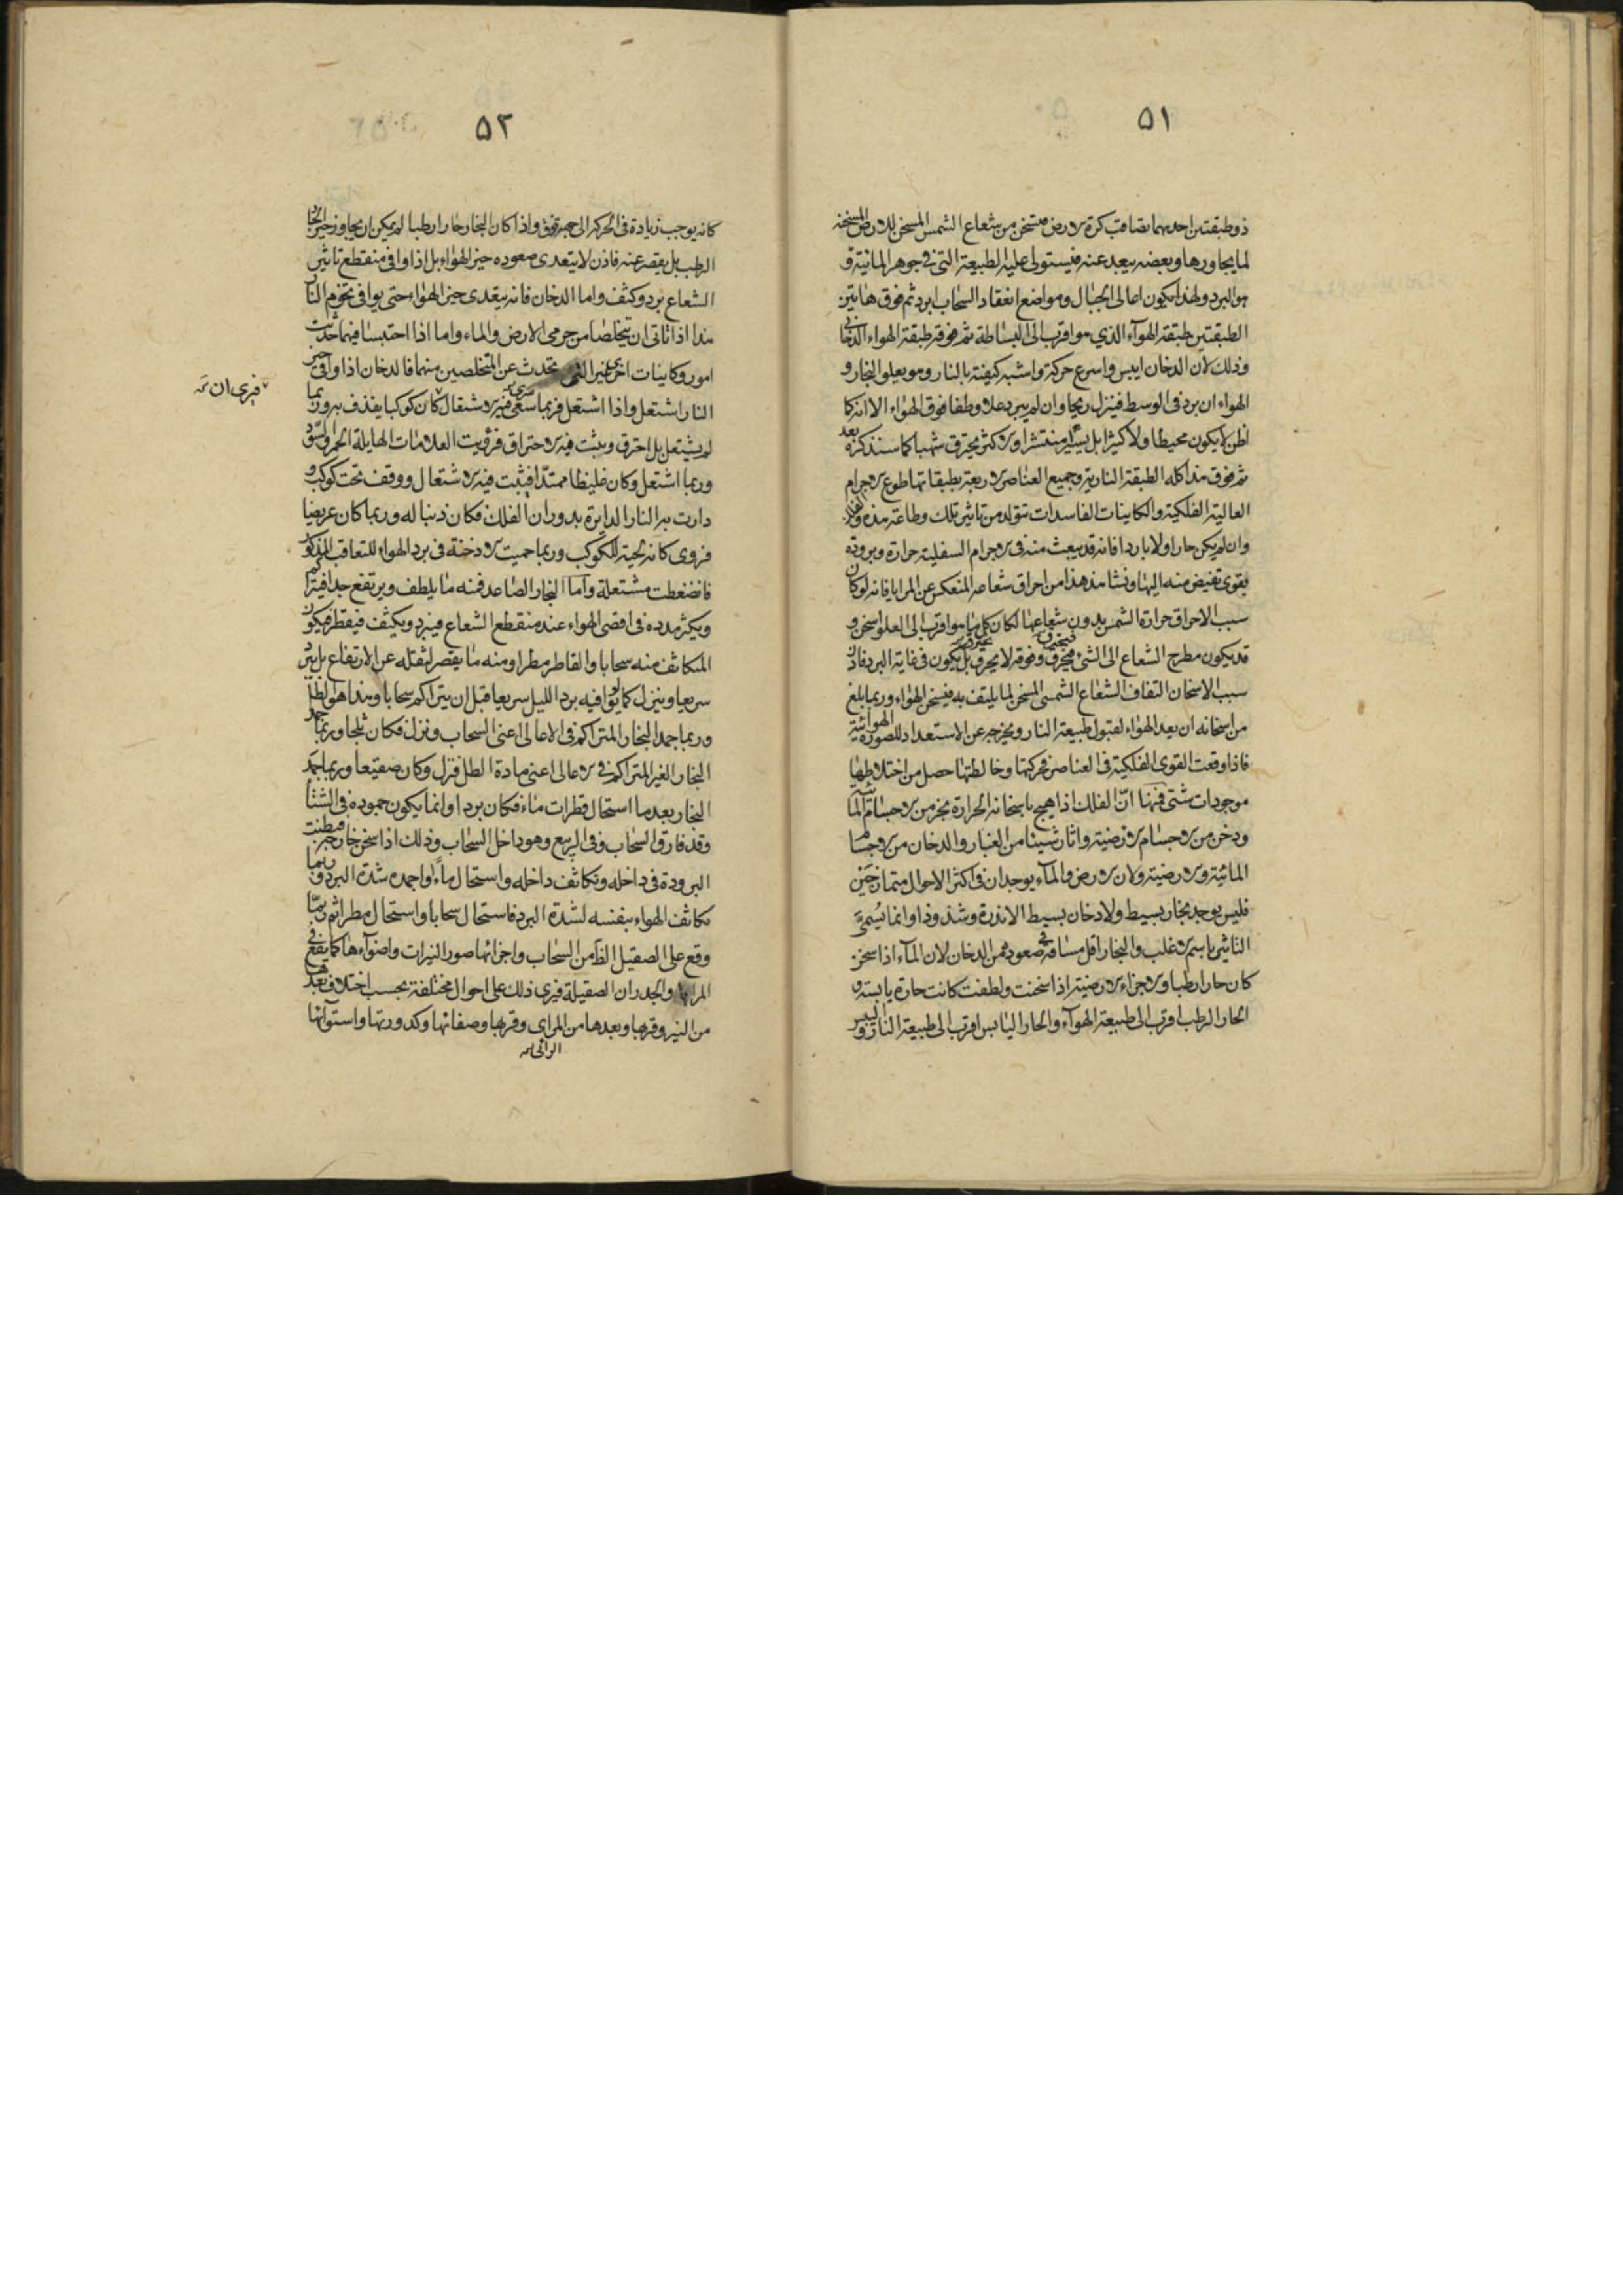 ٥١
ذو طبقتين احديهما تصاقب كرة الارض متسخن من شعاع الشمس المسخن للارض المسخنه
لما يجاورها وبعضه يبعد عنه فيستولى عليه الطبيعة التى فى جوهر المائية و
هو البرد ولهذا يكون اعالى الجبال ومواضع انعقاد السحاب ابرد ثم فوق هاتين
الطبقتين طبقة الهوآء الذي هو اقرب الى البساطة ثم فوقه طبقة الهواء الدخانى
وذلك لان الدخان ايبس واسرع حركة واشبه كيفية بالنار وهو يعلو البخار و
الهواء ان برد فى الوسط فينزل ريحا وان لم يبرد علا وطفا فوق الهواء الا انه كما
اظن لا يكون محيطا ولا كثيرا بل يسيرا منتشرا والاكثر يحترق شهبا كما سنذكره بعد
ثم فوق هذا كله الطبقة النارية وجميع العناصر الاربعة بطبقاتها طوع الاجرام
العالية الفلكية والكاينات الفاسدات تتولد من تاثير تلك وطاعة هذه والفلك
وان لم يكن حارا ولا باردا فانه قد ينبعث منه فى الاجرام السفلية حرارة وبرودة
بقوى تفيض منه اليها ونشاهد هذا من احراق شعاعه المنعكس عن المرايا فانه لو كان
سبب الاحراق حرارة الشمس بدون شعاعها لكان كل ما هو اقرب الى العلو اسخن و
قد يكون مطرح الشعاع الى الشئ فيحترق وفوقه لا يحترق بل يكون فى غاية البرد فاذن
سبب الاسخان التفاف الشعاع الشمسى المسخن لما يلتف به فيسخن الهواء وربما بلغ
من اسخانه ان يعد الهواء لقبول طبيعة النار ويخرجه عن الاستعداد للصورة الهوائية
فاذا وقعت القوى الفلكية فى العناصر فحركتها وخالطتها حصل من اختلاطها
موجودات شتى فمنها انّ الفلك اذا هيج باسخانه الحرارة بخر من الاجسام المائية
ودخن من الاجسام الارضية واثار شيئا من الغبار والدخان من الاجسام
المائية والارضية ولان الارض والمآء يوجدان فى اكثر الاحوال متمازجين
فليس يوجد بخار بسيط ولا دخان بسيط الا ندرة وشذوذا وانما يُسمىّ
التاثير باسم الاغلب والبخار اقل مسافة فى صعوده من الدخان لان المآء اذا سخن
كان حارا رطبا والاجزاء الارضية اذا سخنت ولطفت كانت حارة يابسة و
الحار الرطب اقرب الى طبيعة الهوآء والحار اليابس اقرب الى طبيعة النار واليبس
٥٢
كانه يوجب زيادة فى الحركة الى جهة فوق واذا كان البخار حارا رطبا لم يكن ان يجاوز حيز الحار
الرطب بل يقصر عنه فاذن لا يتعدى صعوده حيز الهواء بل اذا وافى منقطع تاثير
الشعاع برد وكثف واما الدخان فانه يتعدى حيز الهواء حتى يوافى تخوم النار
هذا اذا تاتى ان يتخلصا من جرمى الارض والماء واما اذا احتبسا فيهما حدثت
امور وكاينات اخرى غير التى تحدث عن المتخلصين منهما فالدخان اذا وافى حيز
النار اشتعل واذا اشتعل فربما سعى فيه الاشتعال كان كوكبا يقذف به وربما
سرى
لم يشتعل بل احترق ويثبت فيه الاحتراق فرؤيت العلامات الهايلة الحمر والسود
فيرى ان
وربما اشتعل وكان غليظا ممتدّا فيثبت فيه الاشتعال ووقف تحت كوكب و
دارت به النار الدايرة بدوران الفلك فكان ذنبا له وربما كان عريضا
فروى كانه لحية للكوكب وربما حميت الادخنة فى برد الهواء للتعاقب المذكور
فانضغطت مشتعلة واما البخار الصاعد فمنه ما يلطف ويرتفع جدا فيتراكم
ويكثر مدده فى اقصى الهواء عند منقطع الشعاع فيبرد ويكثف فيقطر فيكون
المتكاثف منه سحابا والقاطر مطرا ومنه ما يقصر لثقله عن الارتفاع بل يبرد
سريعا وينزل كما لو يوافيه برد الليل سريعا قبل ان يتراكم سحابا وهذا هو الطلّ
وربما جمد البخار المتراكم فى الاعالى اعنى السحاب ونزل فكان ثلجا وربما جمد
البخار الغير المتراكم فى الاعالى اعنى مادة الطل فنزل وكان صقيعا وربما جمَد
البخار بعد ما استحال قطرات ماء فكان بردا وانما يكون جموده فى الشتاء
وقد فارق السحاب وفى الربيع وهو داخل السحاب وذلك اذا سخن خارجه فبطنت
البرودة فى داخله وتكاثف داخله واستحال ماءً واجمده شدة البرد وربما
تكاثف الهواء بنفسه لشدة البرد فاستحال سحابا واستحال مطرا ثم ربمّا
وقع على الصقيل الظاهر من السحاب واجزائها صور النيرات واضوآءها كما يقع فى
المرايا والجدران الصقيلة فيرى ذلك على احوال مختلفة بحسب اختلاف بعدها
من النير وقربها وبعدها من المراى وقربها وصفائها وكدورتها واستوآئها
الرائى